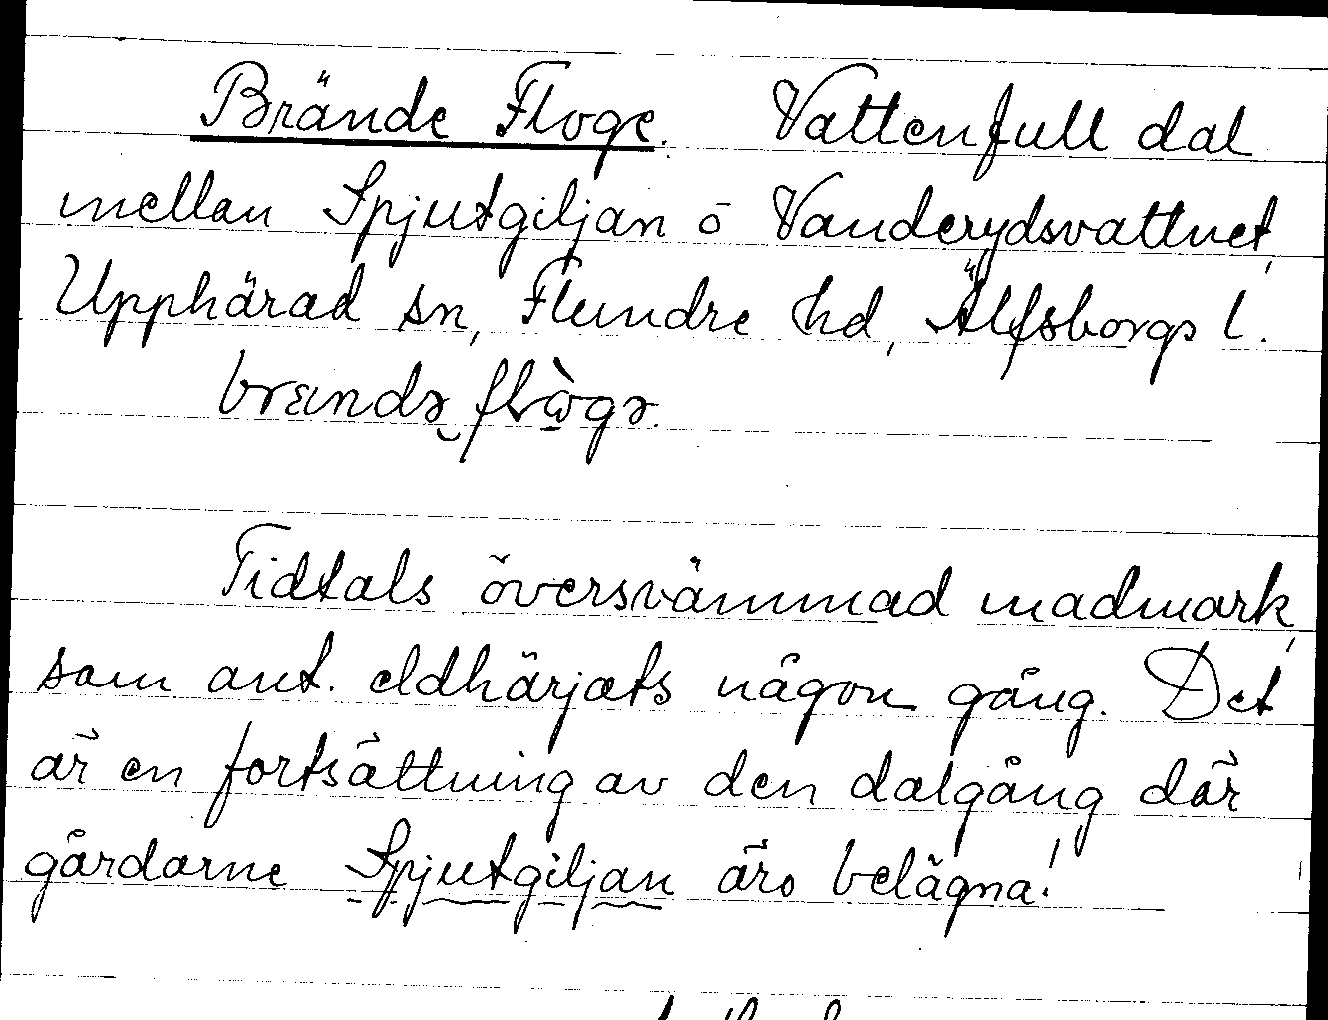 Brände Floge. Vattenfull dal
mellan Spjutgiljan o Vanderydsvattnet,
Upphärad sn, Flundre hd, Älfsborgs l.
brændə flògə.
Tidtals översvämmad madmark,
som ant. eldhärjats någon gång. Det
är en fortsättning av den dalgång där
gårdarne Spjutgiljan äro belägna!